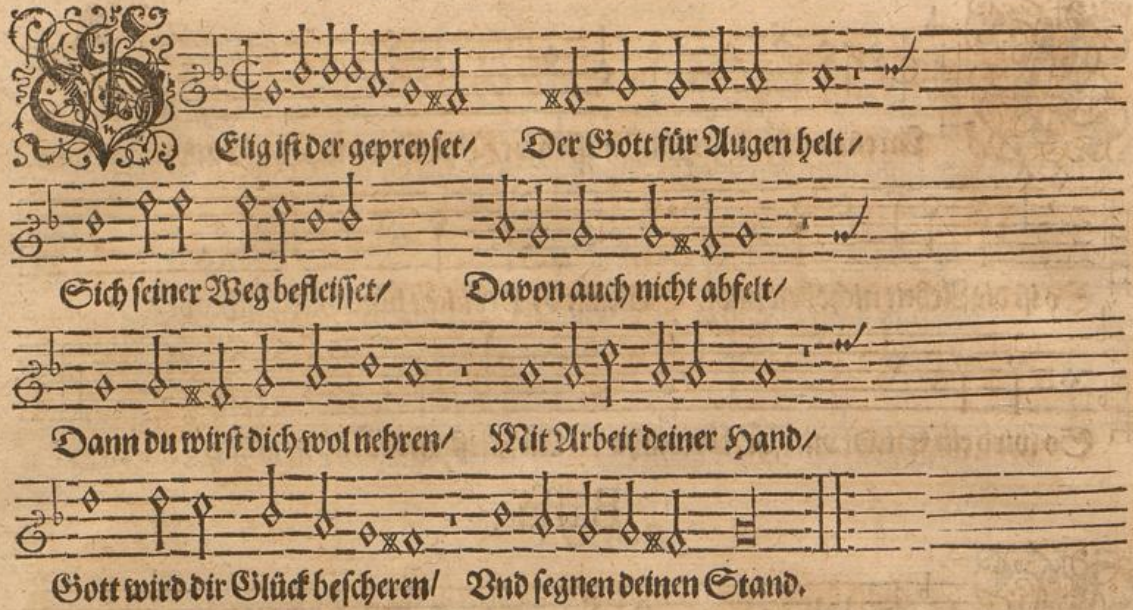 SElig ist der gepreyset/ Der Gott für Augen helt/
Sich seiner Weg befleisset/ Davon auch nicht abfelt/
Dann du wirst dich wol nehren/ Mit Arbeit deiner Hand/
Gott wird dir Glück bescheren/ Vnd segnen deinen Stand.